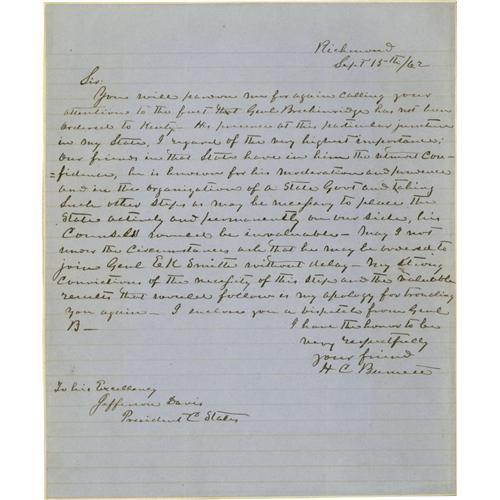 Richmond
Sept 15th/62
Sir:
You will pardon me for again calling your
attention to the fact that Genl Breckinridge has not been
ordered to Kenty - His presence at this particular juncture
in my State, I regard of the very highest importance;
Our friends in that State have in him the utmost Con-
=fidence, he is known for his moderation and prudence
and in the organization of a State Govt and taking
such other steps as may be necessary to place the
State actively and permanently on our side, his
Counsels would be invaluable - May I not
under the Circumstances ask that he may be ordered to
join Genl E K Smith without delay - My strong
Convictions of the necessity of this step and the valuable
results that would follow is my apology for troubling
you again - I enclose you a dispatch from Genl
B -
I have the honor to be
very respectfully
your friend
H C Burnett
To his Excellency
Jefferson Davis
President C States